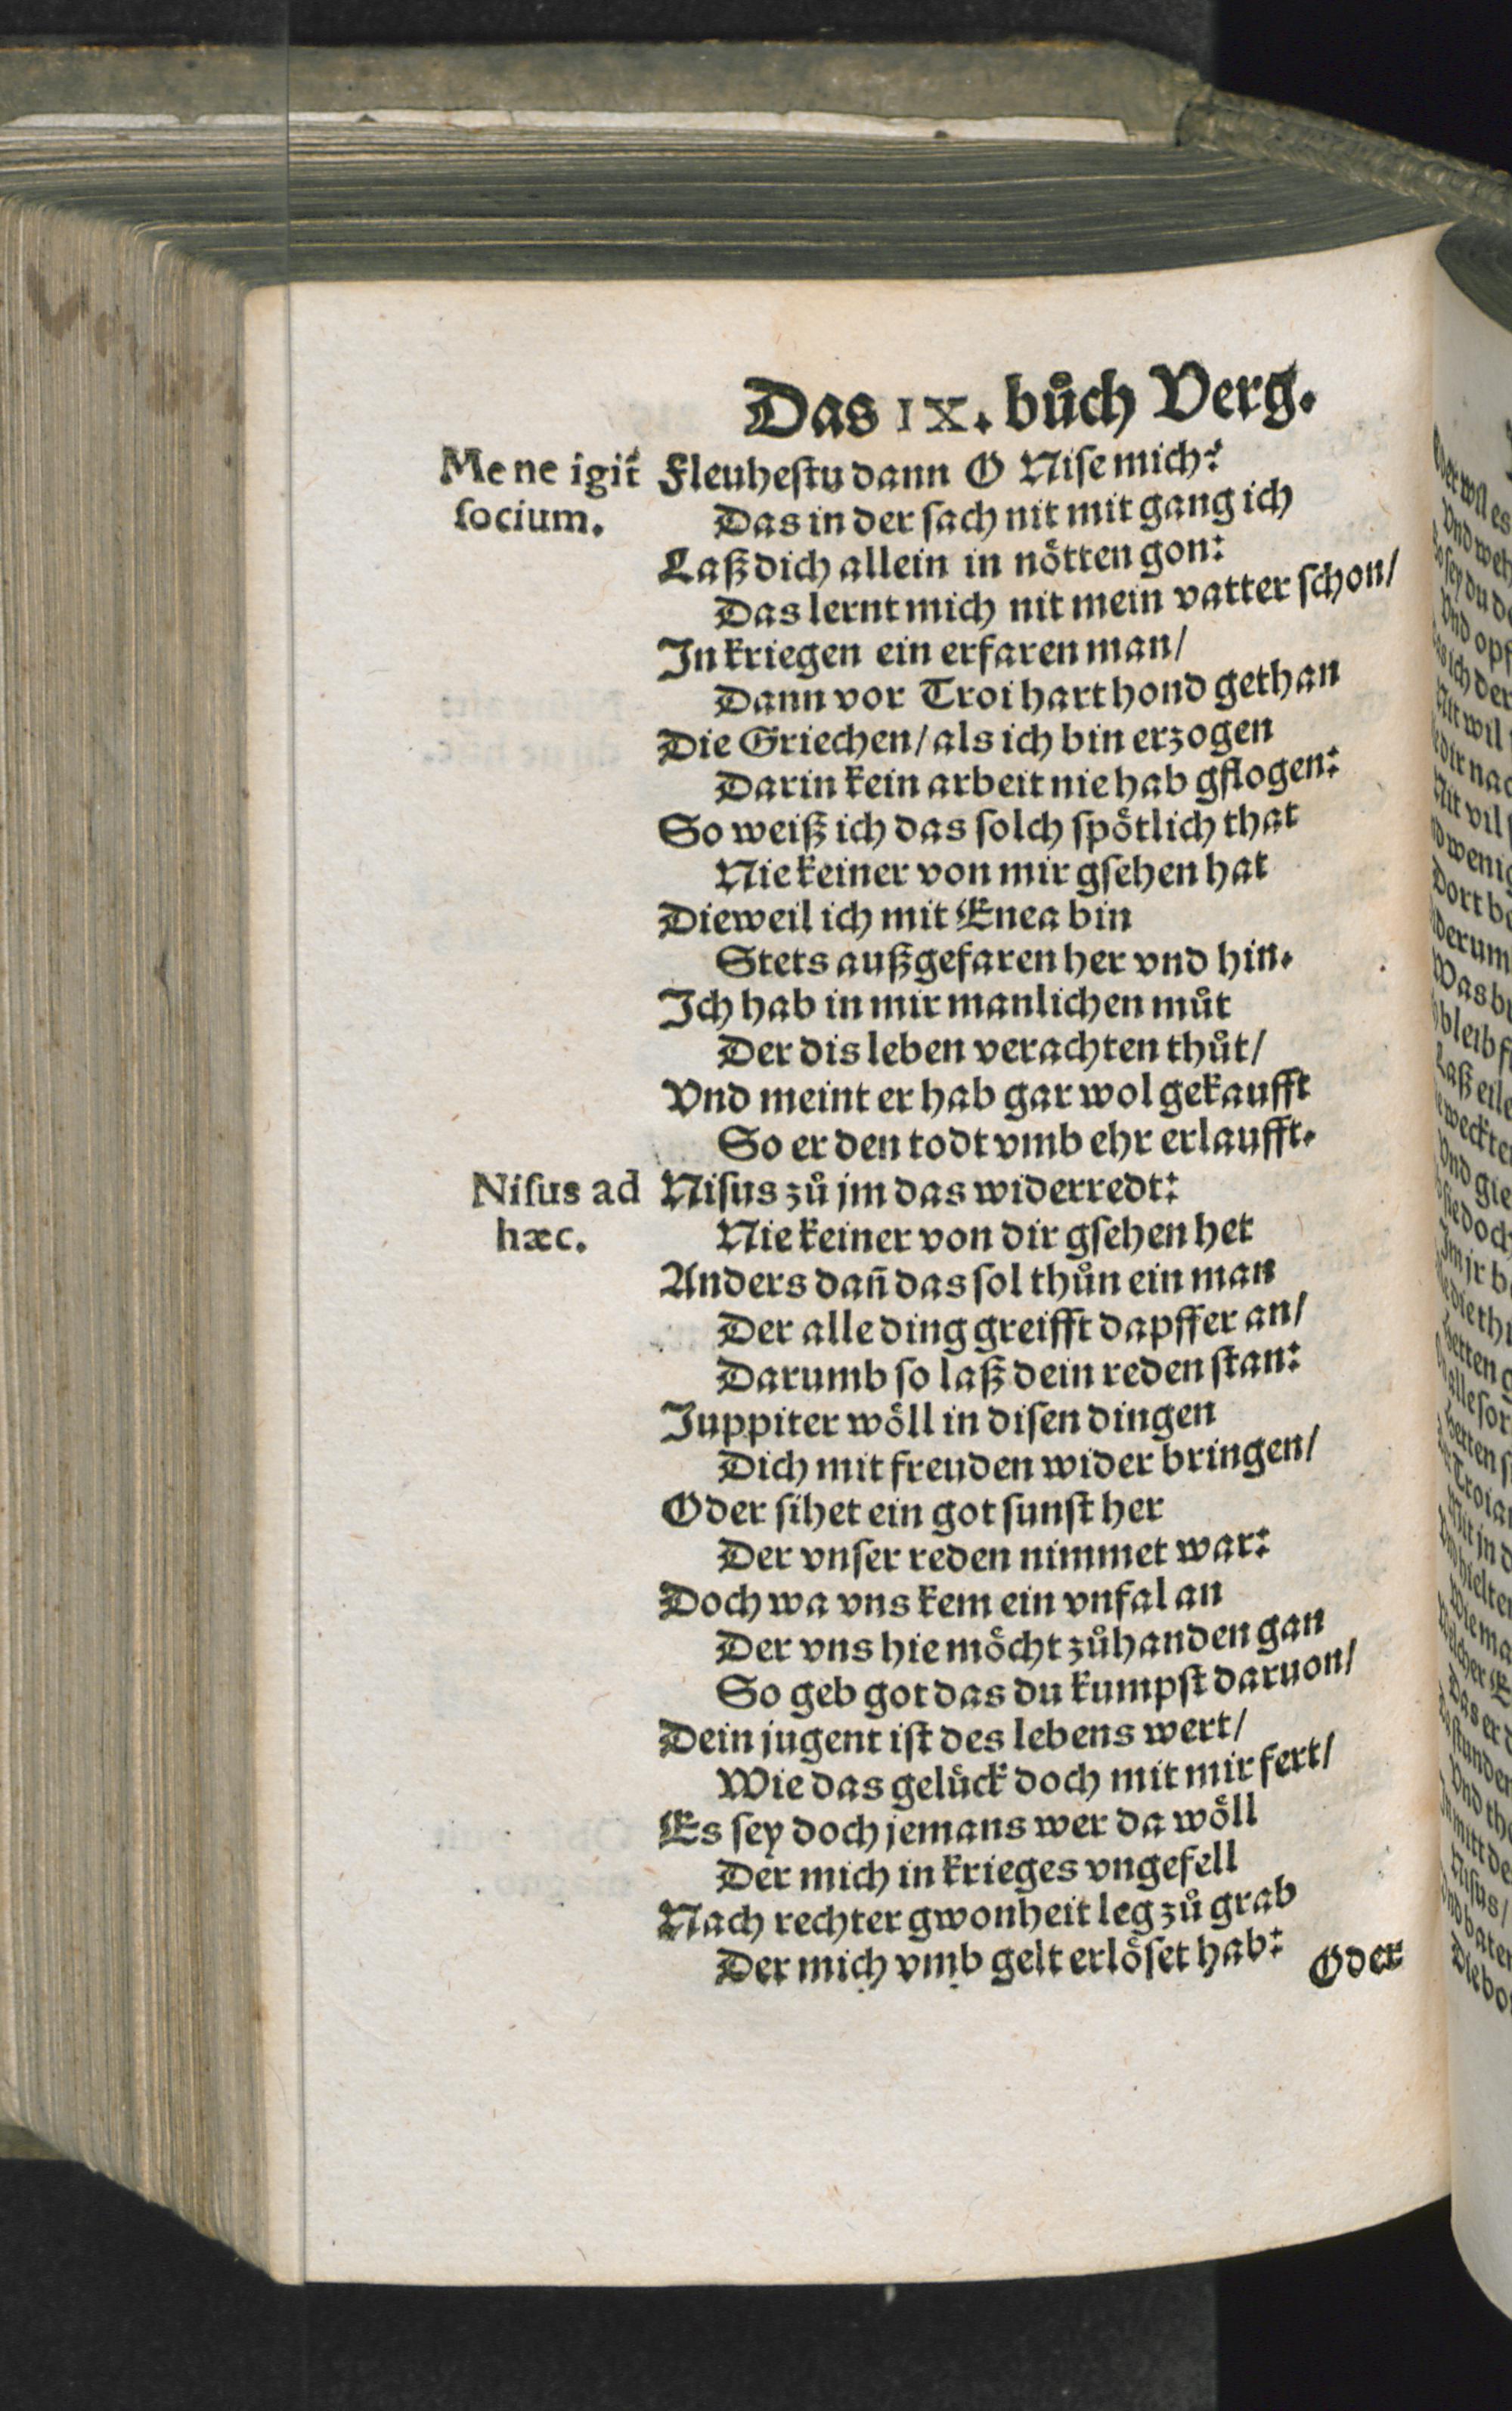 Das IX. bůch Verg.
Me ne igit́
ſocium.
Fleuheſtu dann O Niſe mich?
Das in der ſach nit mit gang ich
Laß dich allein in nöͤtten gon:
Das lernt mich nit mein vatter ſchon/
In kriegen ein erfaren man/
Dann vor Troi hart hond gethan
Die Griechen/ als ich bin erzogen
Darin kein arbeit nie hab gflogen:
So weiß ich das ſolch ſpöͤtlich that
Nie keiner von mir gſehen hat
Dieweil ich mit Enea bin
Stets außgefaren her vnd hin.
Ich hab in mir manlichen můt
Der dis leben verachten thůt/
Vnd meint er hab gar wol gekaufft
So er den todt vmb ehr erlaufft.
Niſus ad
hæc.
Niſus zů jm das widerredt:
Nie keiner von dir gſehen het
Anders dañ das ſol thůn ein man
Der alle ding greifft dapffer an/
Darumb ſo laß dein reden ſtan:
Juppiter wöͤll in diſen dingen
Dich mit freuden wider bringen/
Oder ſihet ein got ſunſt her
Der vnſer reden nimmet war:
Doch wa vns kem ein vnfal an
Der vns hie möͤcht zůhanden gan
So geb got das du kumpſt daruon/
Dein jugent iſt des lebens wert/
Wie das gelüͤck doch mit mir fert/
Es ſey doch jemans wer da wöͤll
Der mich in krieges vngefell
Nach rechter gwonheit leg zů grab
Der mich vmb gelt erlöͤſet hab:
Oder